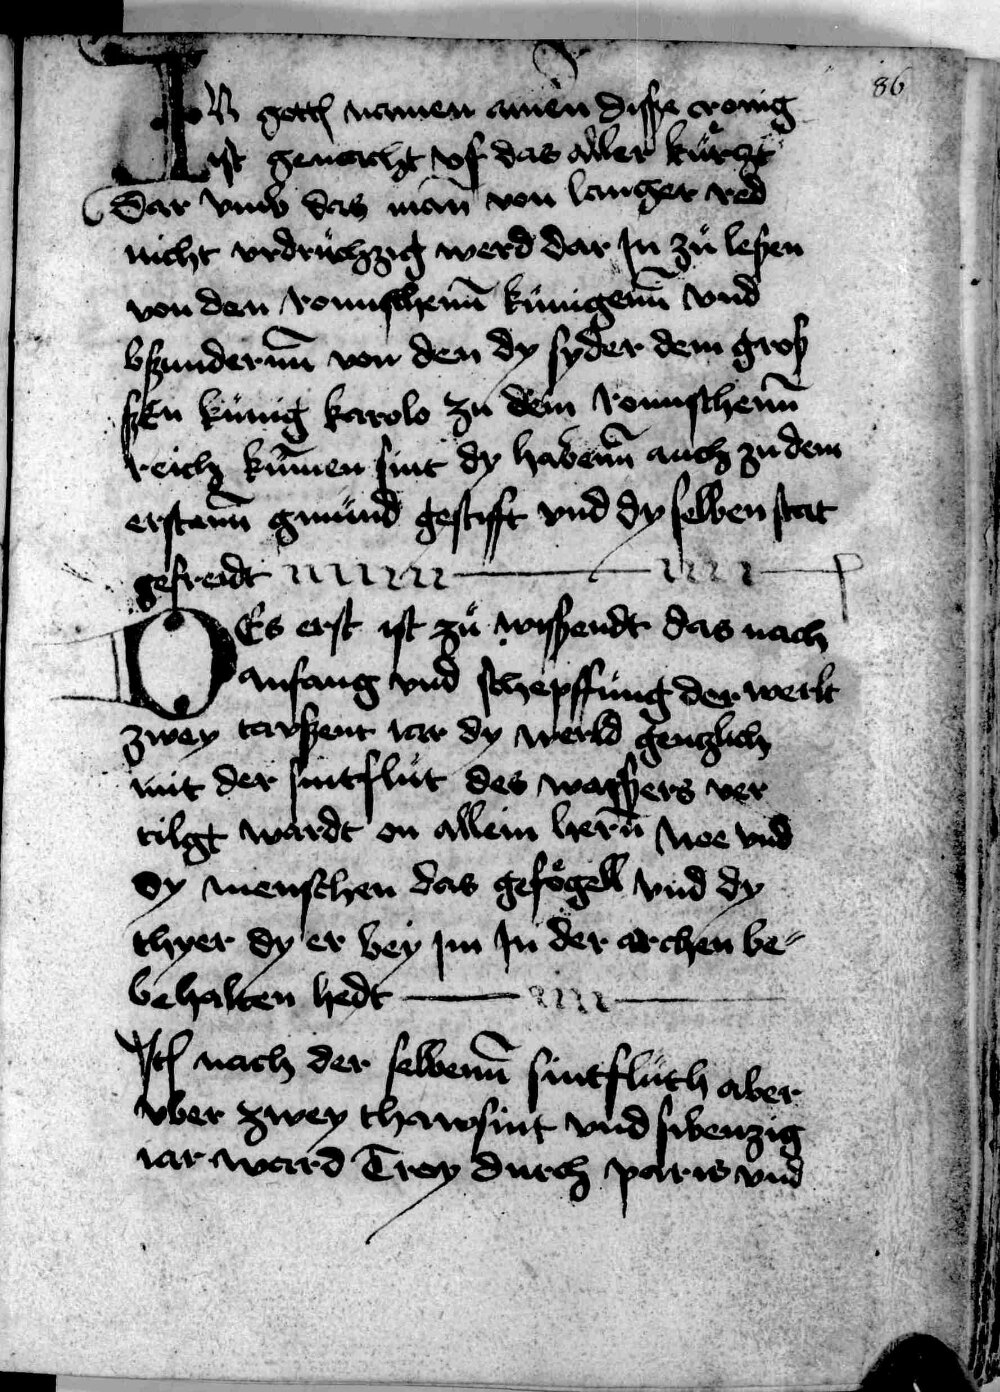 86
IN gottes namen amen disse cronig
ist gemacht vf das aller kürtzt
Dar vmb das man von langer red
nicht vrdrüchzig werd dar In zů lesen
von den romischenn künigenn vnd
bsundernn von den dy syder dem gros
szen künig karolo zu dem romschenn
reich kumen sint dy habenn auch zu dem
erstenn gmünd gestifft vnd dy selben stat
gefreidt
DEs erst ist zů wissendt das nach
anfang vnd schepffung der werlt
zwey tavssent iar dy werld gentzlich
mit der sintflut des wassers ver
tilgt wardt on allein hern Noe vnd
dy menschen das gefögell vnd dy
thyer dy er bey im In der archen be-
behalten hedt
Item nach der selbenn sintfluth aber
vber zwey thawsint vnd sibenzig
iar ward Troy durch paris vnd